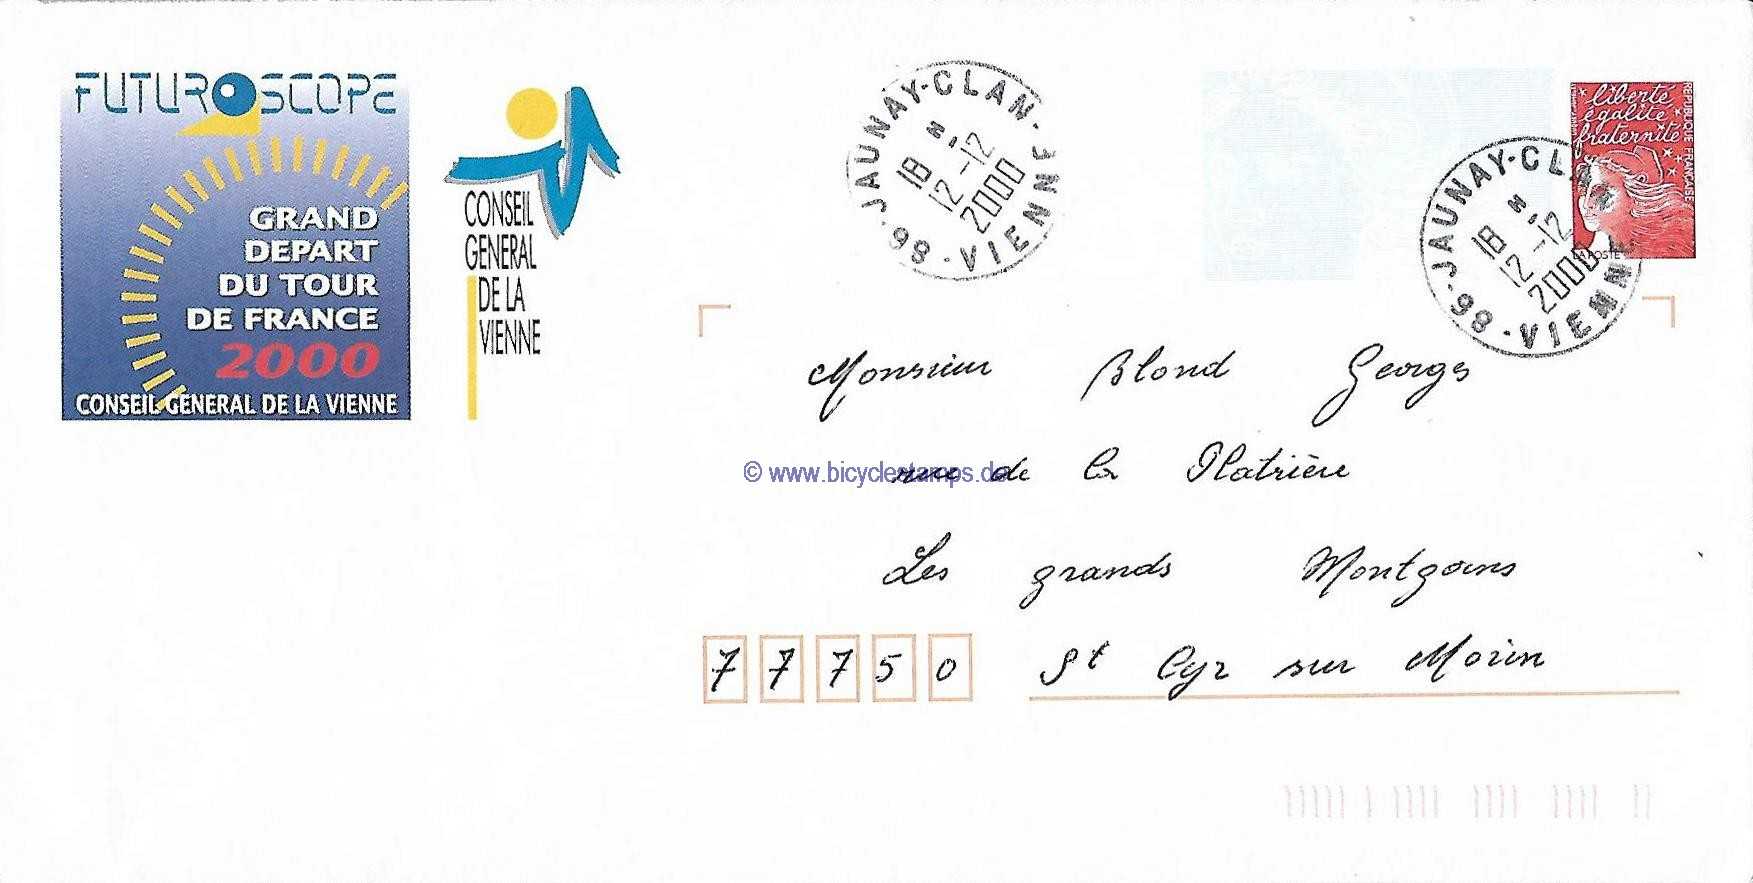 FUTUROSCOPE
GRAND
DEPART
DU TOUR
DE FRANCE
2000
CONSEIL GENERAL DE LA VIENNE
CONSEIL
GENERAL
DE LA
VIENNE
JAUNAY-CLAN - 86 - VIENNE
18 H
12-12
2000
liberté
égalité
fraternité
REPUBLIQUE FRANÇAISE
LA POSTE
JAUNAY-CLAN - 86 - VIENNE
18 H
12-12
2000
Monsieur Blond Georges
© www.bicyclestamps.de
rue de la Platrière
Les grands Montgoins
77750 St Cyr sur Morin